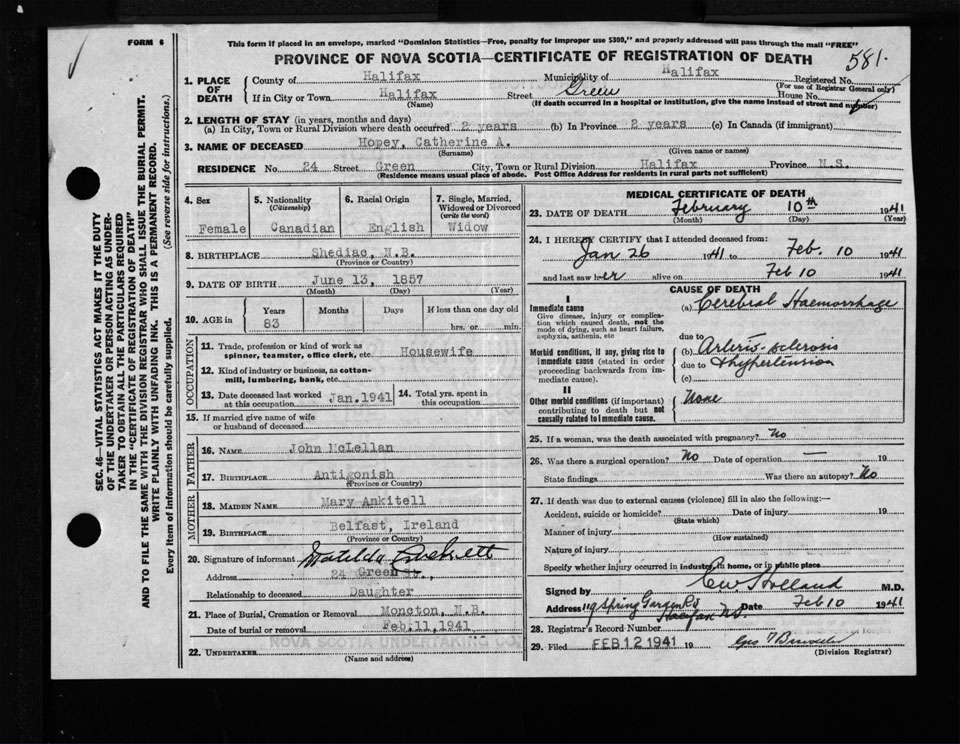 FORM 6
This form if placed in an envelope, marked "Dominion Statistics—Free, penalty for improper use $300," and properly addressed will pass through the mail "FREE"
PROVINCE OF NOVA SCOTIA—CERTIFICATE OF REGISTRATION OF DEATH
581.
1. PLACE OF DEATH
County of Halifax Municipality of Halifax Registered No.
(For use of Registrar General only)
If in City or Town Halifax Street Green House No.
(Name) (If death occurred in a hospital or institution, give the name instead of street and number)
2. LENGTH OF STAY (in years, months and days)
(a) In City, Town or Rural Division where death occurred 2 years (b) In Province 2 years (c) In Canada (if immigrant)
3. NAME OF DECEASED Hopey, Catherine A.
(Surname) (Given name or names)
RESIDENCE No. 24 Street Green City, Town or Rural Division Halifax Province N.S.
(Residence means usual place of abode. Post Office Address for residents in rural parts not sufficient)
4. Sex Female
5. Nationality (Citizenship) Canadian
6. Racial Origin English
7. Single, Married, Widowed or Divorced (write the word) Widow
8. BIRTHPLACE Shediac, N.B.
(Province or Country)
9. DATE OF BIRTH June 13, 1857
(Month) (Day) (Year)
10. AGE in Years Months Days If less than one day old
83 hrs. or min.
OCCUPATION
11. Trade, profession or kind of work as spinner, teamster, office clerk, etc. Housewife
12. Kind of industry or business, as cotton-mill, lumbering, bank, etc.
13. Date deceased last worked at this occupation Jan.1941
14. Total yrs. spent in this occupation
15. If married give name of wife or husband of deceased
FATHER
16. NAME John McLellan
17. BIRTHPLACE Antigonish
(Province or Country)
MOTHER
18. MAIDEN NAME Mary Ankitell
19. BIRTHPLACE Belfast, Ireland
(Province or Country)
20. Signature of informant Matilda
Address 24 Green St.,
Relationship to deceased Daughter
21. Place of Burial, Cremation or Removal Moncton, N.B.
Date of burial or removal Feb.11,1941
22. UNDERTAKER
NOVA SCOTIA UNDERTAKING CO.
(Name and address)
MEDICAL CERTIFICATE OF DEATH
23. DATE OF DEATH February 10th 1941
(Month) (Day) (Year)
24. I HEREBY CERTIFY that I attended deceased from:
Jan 26 1941 to Feb. 10 1941
and last saw her alive on Feb 10 1941
CAUSE OF DEATH
I
Immediate cause (a) Cerebral Haemorrhage
Give disease, injury or complication which caused death, not the mode of dying, such as heart failure, asphyxia, asthenia, etc
due to
Morbid conditions, if any, giving rise to immediate cause (stated in order proceeding backwards from immediate cause).
(b) Arterio-sclerosis
due to & hypertension
(c)
II
Other morbid conditions (if important) contributing to death but not causally related to immediate cause.
None
25. If a woman, was the death associated with pregnancy? No
26. Was there a surgical operation? No Date of operation — 19
State findings Was there an autopsy? No
27. If death was due to external causes (violence) fill in also the following:—
Accident, suicide or homicide? Date of injury 19
(State which)
Manner of injury
(How sustained)
Nature of injury
Specify whether injury occurred in industry, in home, or in public place
Signed by C W Holland M.D.
Address 119 Spring Garden Rd Date Feb 10 1941
Halifax NS.
28. Registrar's Record Number
29. Filed FEB 12 1941 19 Geo
(Division Registrar)
SEC. 46—VITAL STATISTICS ACT MAKES IT THE DUTY
OF THE UNDERTAKER OR PERSON ACTING AS UNDER-
TAKER TO OBTAIN ALL THE PARTICULARS REQUIRED
IN THE "CERTIFICATE OF REGISTRATION OF DEATH"
AND TO FILE THE SAME WITH THE DIVISION REGISTRAR WHO SHALL ISSUE THE BURIAL PERMIT.
WRITE PLAINLY WITH UNFADING INK. THIS IS A PERMANENT RECORD.
Every item of information should be carefully supplied. (See reverse side for instructions.)